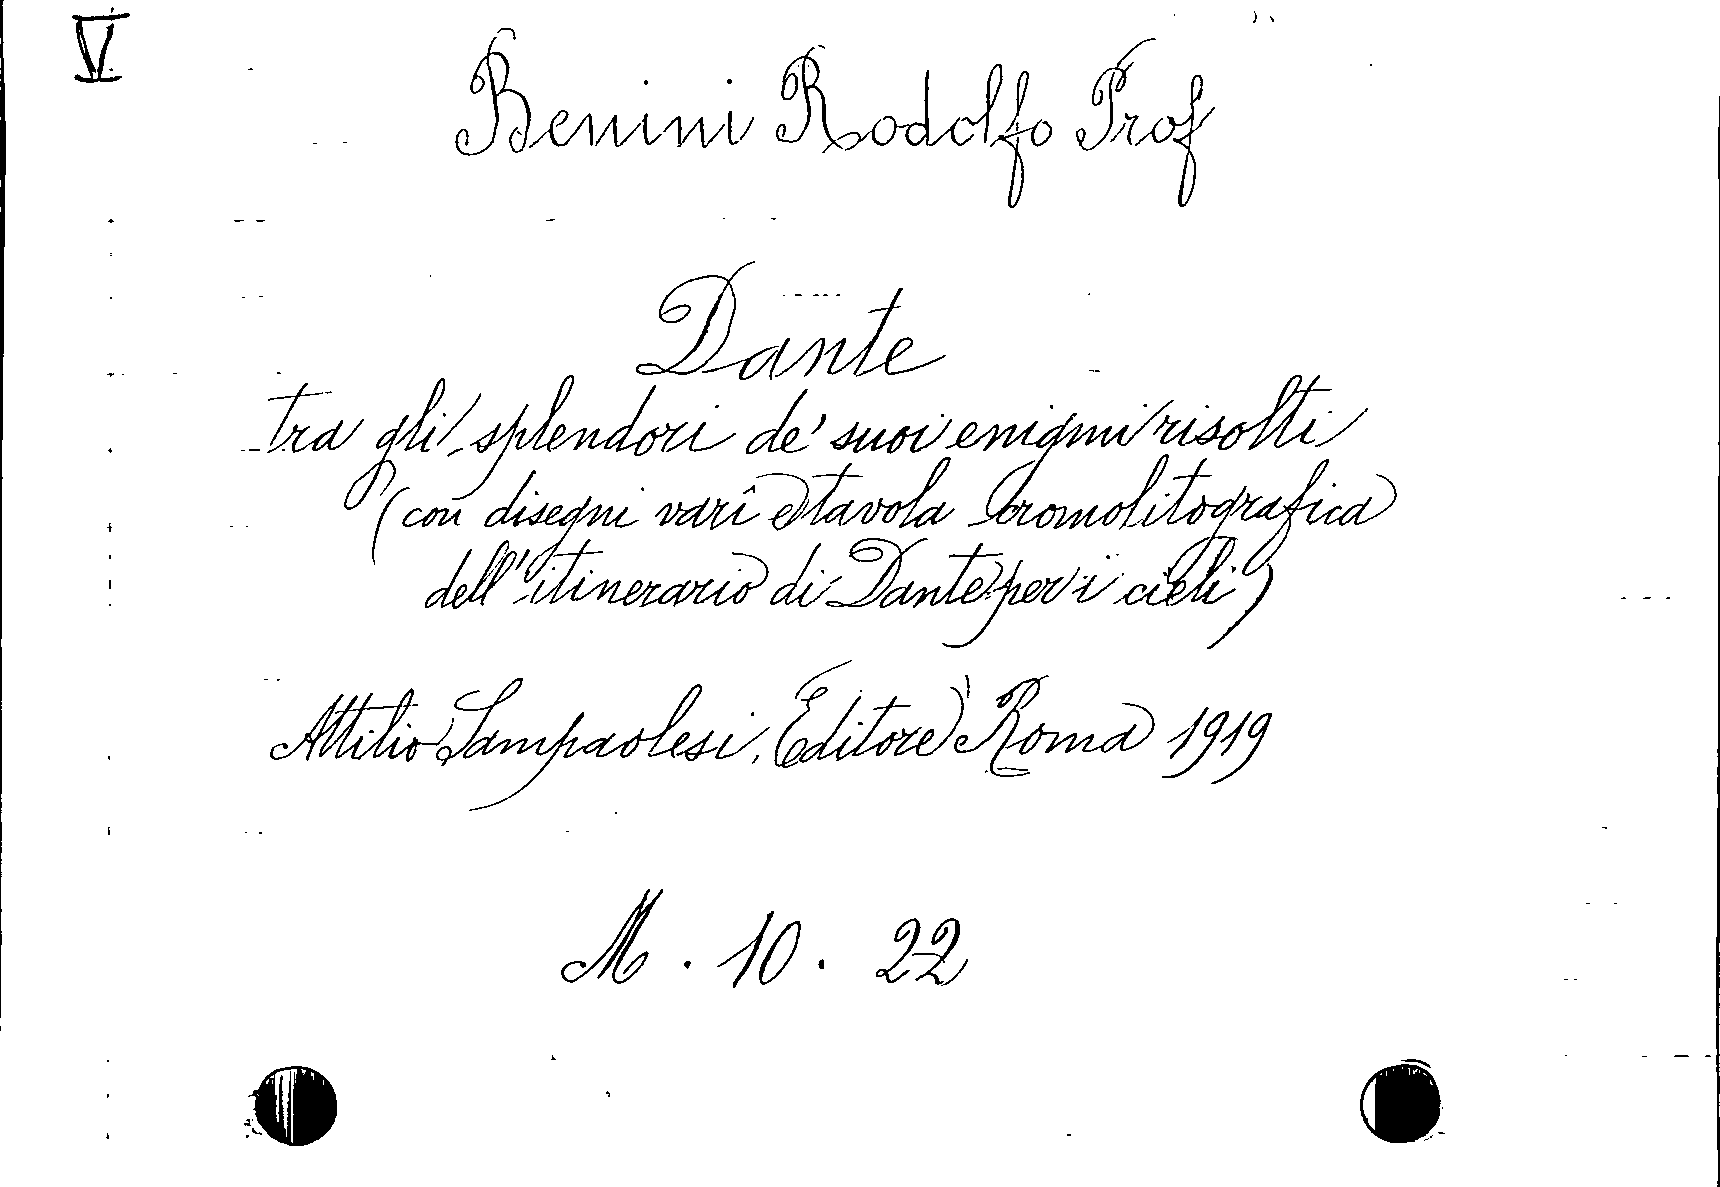 V
Benini Rodolfo Prof
Dante
tra gli splendori de' suoi enigmi risolti
(con disegni varî e tavola cromolitografica
dell'itinerario di Dante per i cieli)
Attilio Sampaolesi, Editore, Roma 1919
M. 10. 22